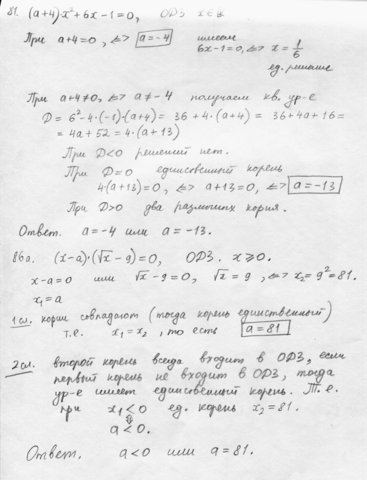 81. (a+4)·x²+6x-1=0, ОДЗ x∈ℝ
При a+4=0, <=> a=-4 имеем
6x-1=0, <=> x=1/6
ед. решение
При a+4≠0, <=> a≠-4 получаем кв. ур-е
D=6²-4·(-1)·(a+4)=36+4·(a+4)=36+4a+16=
=4a+52=4·(a+13)
При D<0 решений нет.
При D=0 единственный корень
4(a+13)=0, <=> a+13=0, <=> a=-13
При D>0 два различных корня.
Ответ. a=-4 или a=-13.
86а. (x-a)·(√x-9)=0, ОДЗ. x≥0.
x-a=0 или √x-9=0, √x=9, <=> x₂=9²=81.
x₁=a
1сл. корни совпадают (тогда корень единственный)
т.е. x₁=x₂, то есть a=81
2сл. второй корень всегда входит в ОДЗ, если
первый корень не входит в ОДЗ, тогда
ур-е имеет единственный корень. Т.е.
при x₁<0 ед. корень x₂=81.
⇕
a<0.
Ответ. a<0 или a=81.